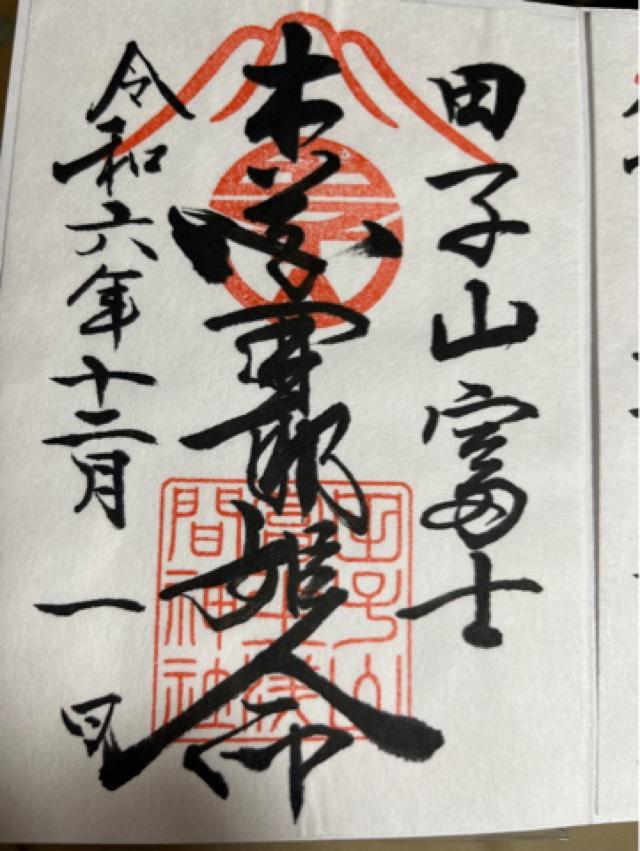 田子山富士
木花開耶姫命
令和六年十二月一日
田子山富士浅間神社